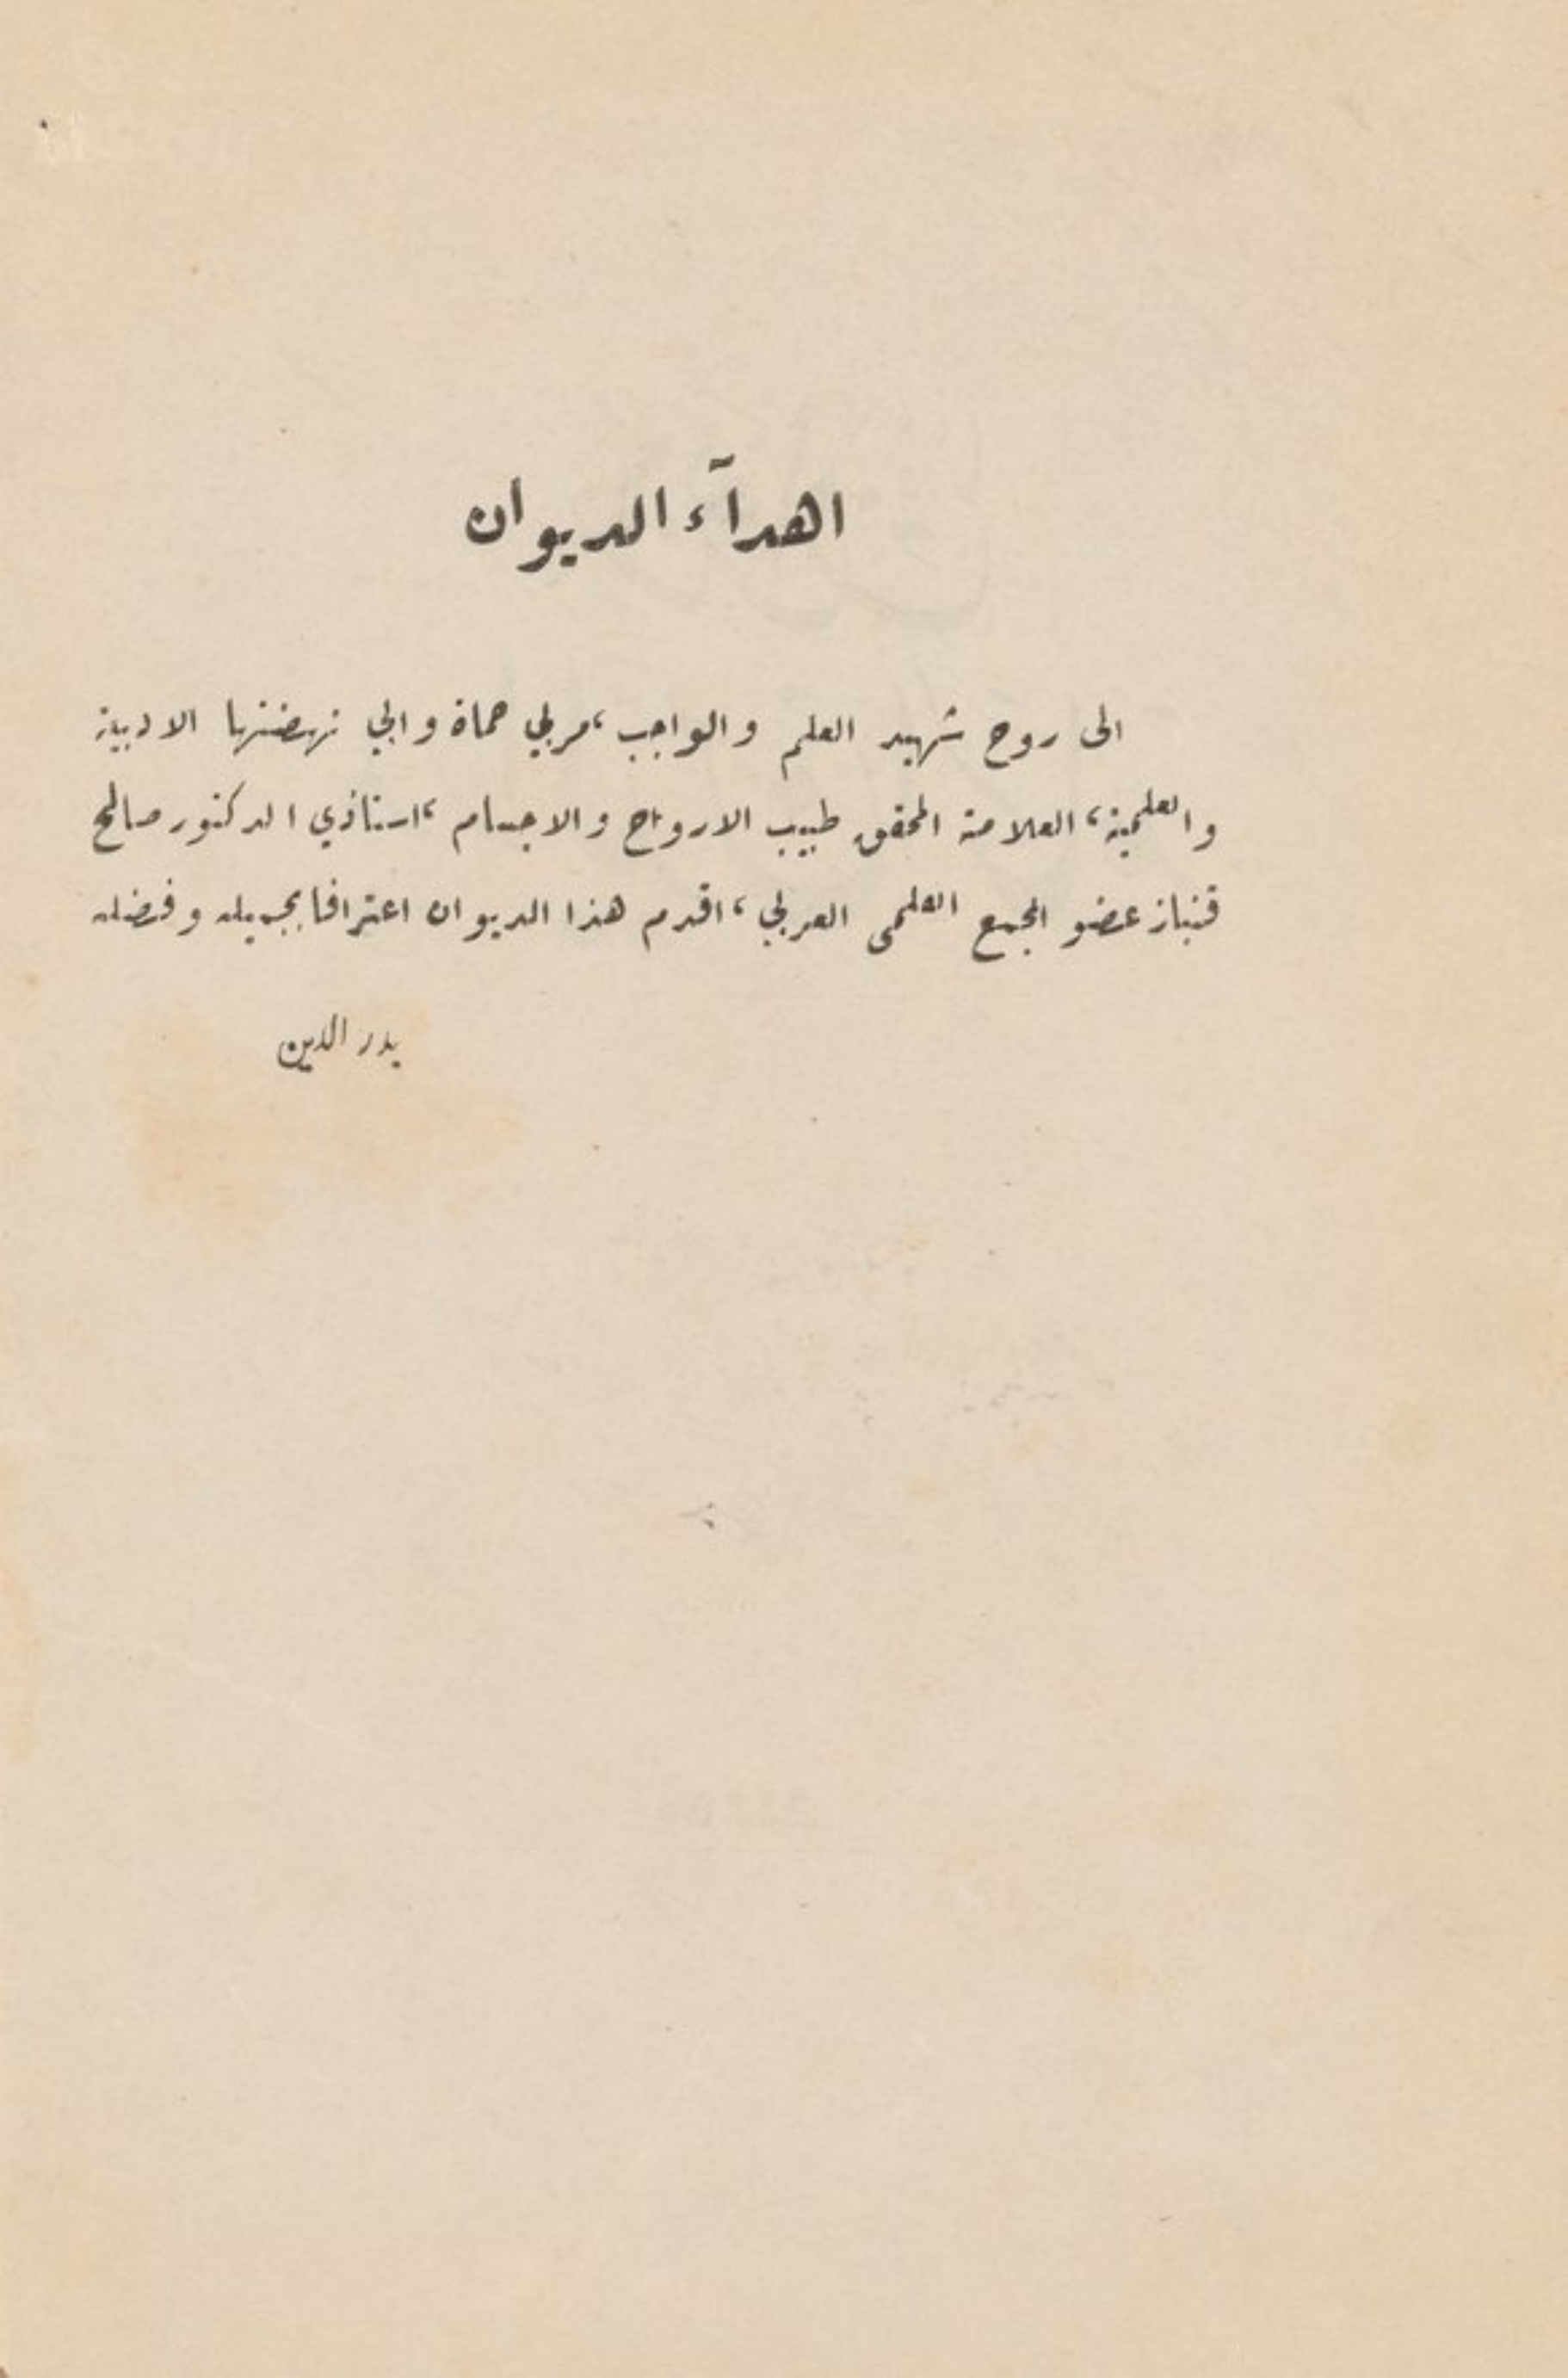 اهدآء الديوان
الى روح شهيد العلم والواجب، مربي حماة وابي نهضتها الادبية
والعلمية، العلامة المحقق طبيب الارواح والاجسام، استاذي الدكتور صالح
قنباز عضو المجمع العلمي العربي، اقدم هذا الديوان اعترافا بجميله وفضله
بدر الدين